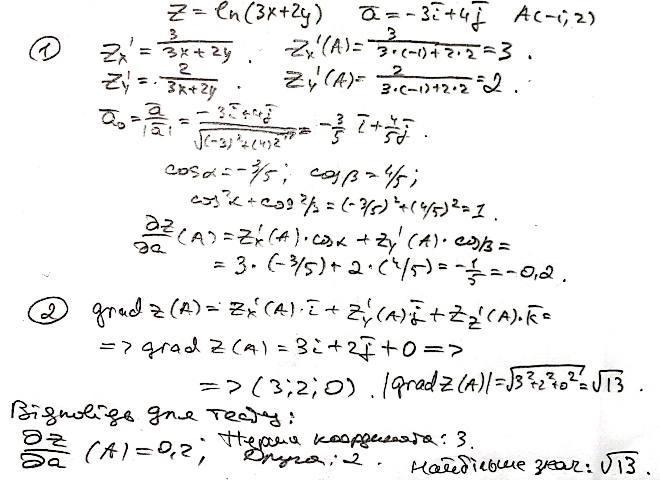 z = ln(3x+2y)   ā = -3ī+4j̄   A(-1; 2)
① z'x = 3/(3x+2y) .   z'x(A) = 3/(3·(-1)+2·2) = 3 .
z'y = 2/(3x+2y) .   z'y(A) = 2/(3·(-1)+2·2) = 2 .
ā₀ = ā/|ā| = (-3ī+4j̄)/√((-3)²+(4)²) = -3/5 ī + 4/5 j̄ .
cosα = -3/5; cosβ = 4/5;
cos²α + cos²β = (-3/5)²+(4/5)² = 1 .
∂z/∂a (A) = z'x(A)·cosα + z'y(A)·cosβ =
= 3·(-3/5) + 2·(4/5) = -1/5 = -0,2 .
② grad z(A) = z'x(A)·ī + z'y(A)j̄ + z'z(A)·k̄ =
=> grad z(A) = 3ī + 2j̄ + 0 =>
=> (3; 2; 0) . |grad z(A)| = √(3²+2²+0²) = √13 .
Відповідь для тесту:
∂z/∂a (A) = 0,2; Перша координата: 3.
Друга: 2 . Найбільше знач: √13 .